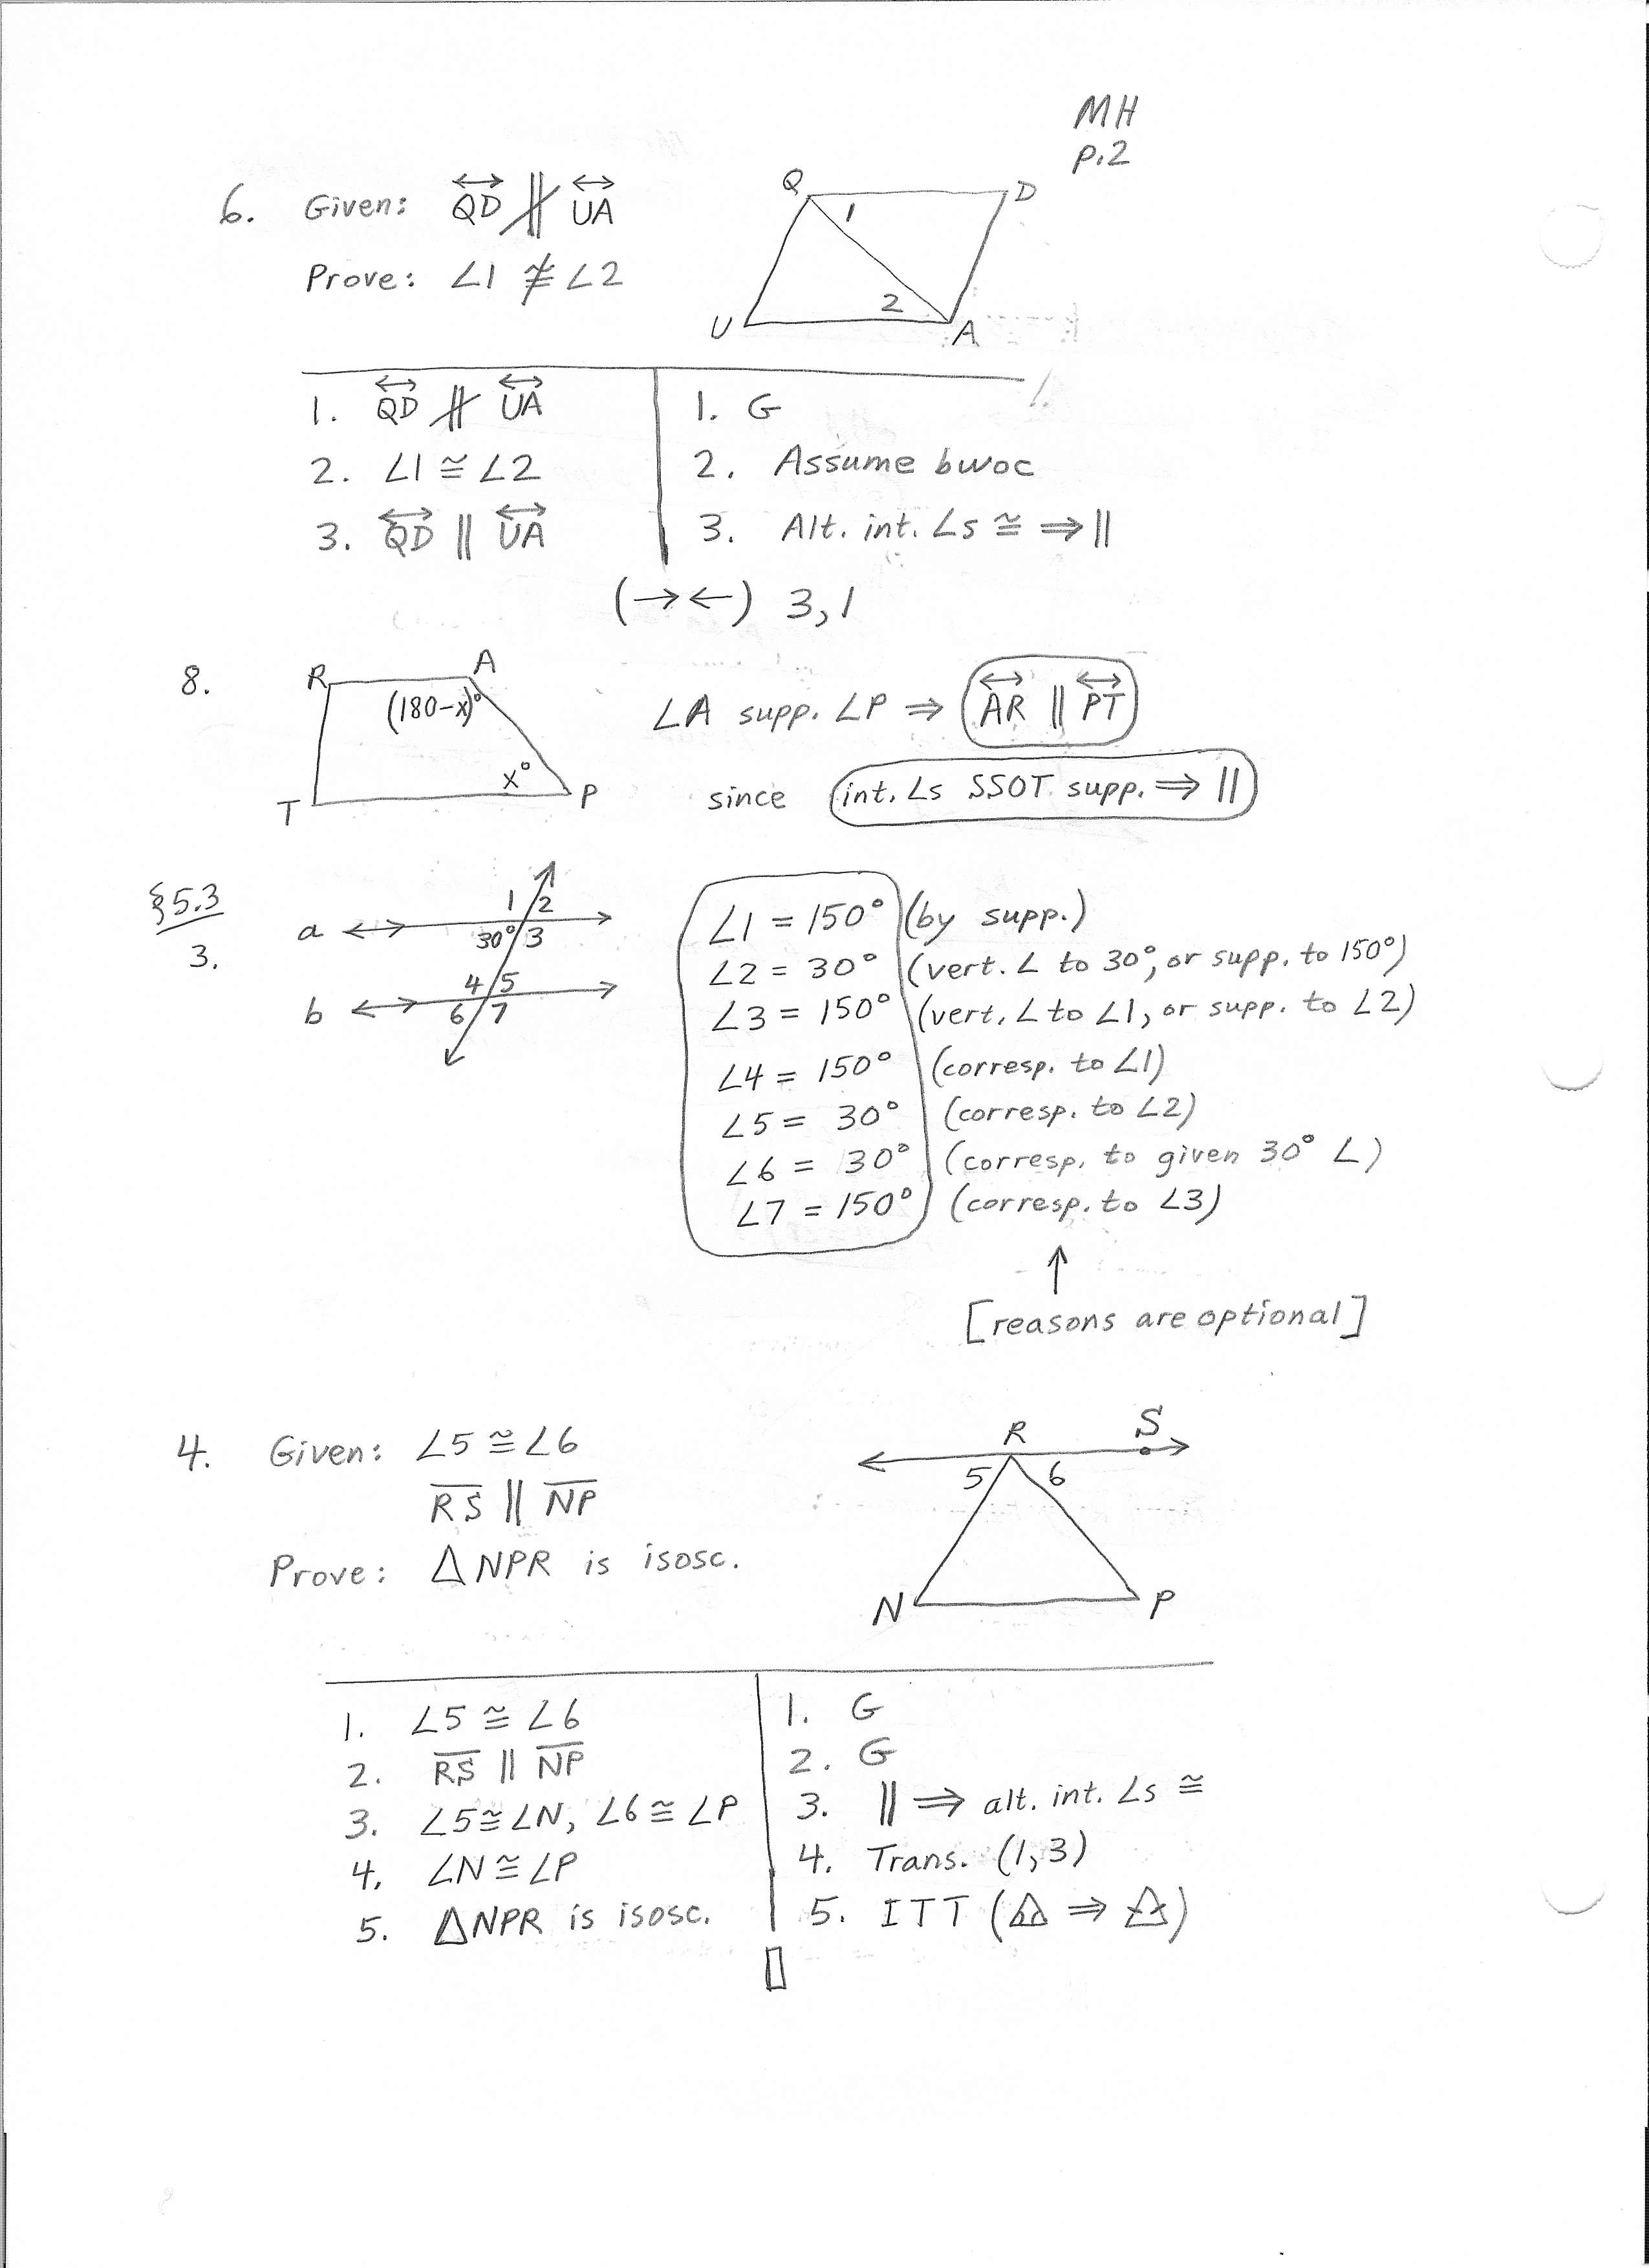 MH
p.2
6. Given: QD ∦ UA
Prove: ∠1 ≇ ∠2
Q D
1
2
U A
1. QD ∦ UA 1. G
2. ∠1 ≅ ∠2 2. Assume bwoc
3. QD || UA 3. Alt. int. ∠s ≅ ⇒ ||
(→←) 3,1
8.
R A
(180-x)°
x°
T P
∠A supp. ∠P ⇒ AR || PT
since int. ∠s SSOT supp. ⇒ ||
§5.3
3.
1 2
a
30° 3
4 5
b
6 7
∠1 = 150° (by supp.)
∠2 = 30° (vert. ∠ to 30°, or supp. to 150°)
∠3 = 150° (vert. ∠ to ∠1, or supp. to ∠2)
∠4 = 150° (corresp. to ∠1)
∠5 = 30° (corresp. to ∠2)
∠6 = 30° (corresp. to given 30° ∠)
∠7 = 150° (corresp. to ∠3)
↑
[reasons are optional]
4. Given: ∠5 ≅ ∠6
RS || NP
Prove: △NPR is isosc.
R S
5 6
N P
1. ∠5 ≅ ∠6 1. G
2. RS || NP 2. G
3. ∠5 ≅ ∠N, ∠6 ≅ ∠P 3. || ⇒ alt. int. ∠s ≅
4. ∠N ≅ ∠P 4. Trans. (1,3)
5. △NPR is isosc. 5. ITT (△ ⇒ △)